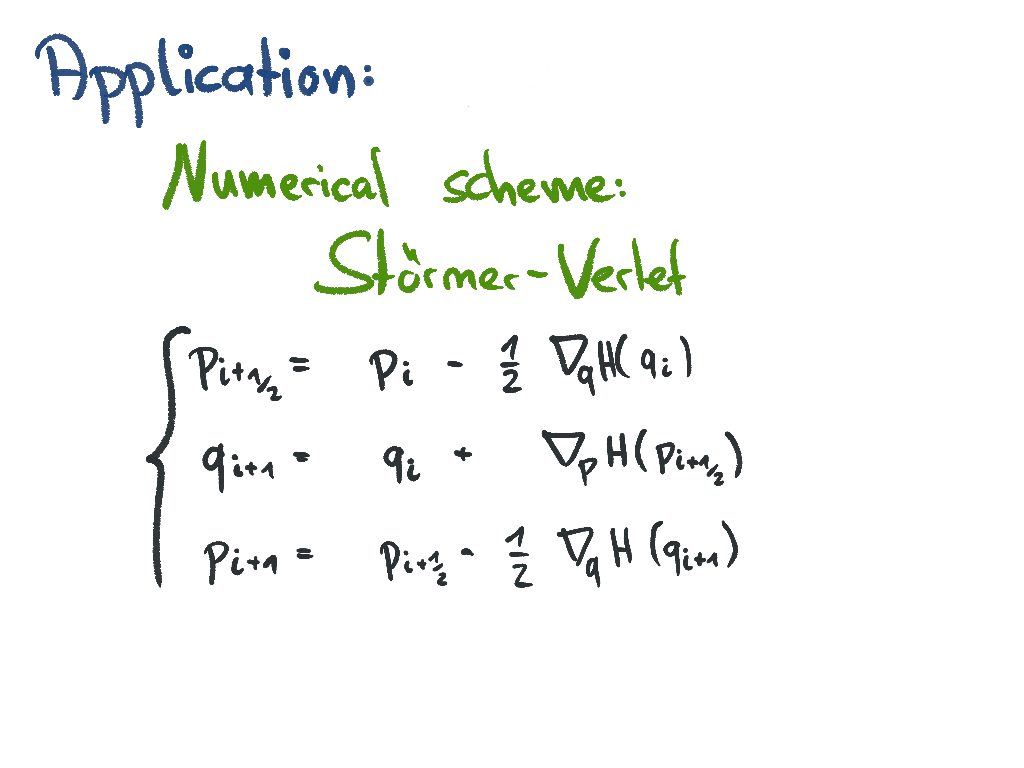 Application:
Numerical scheme:
Störmer-Verlet
p_{i+1/2} = p_i - 1/2 ∇_q H(q_i)
q_{i+1} = q_i + ∇_p H(p_{i+1/2})
p_{i+1} = p_{i+1/2} - 1/2 ∇_q H(q_{i+1})